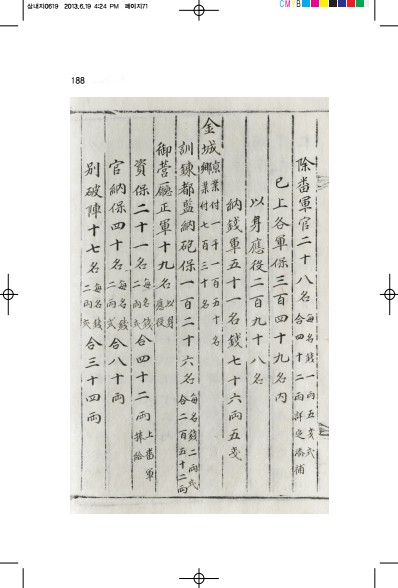 삼내지0619 2013.6.19 4:24 PM 페이지71
CM
188
除番軍官二十八名 每名錢一兩五戔式 合四十二兩
已上各軍保三百四十九名內
以身應役二百九十八名
納錢軍五十一名錢七十六兩五戔
金城 京案付一千一百五十名 鄉案付七百三十名
訓鍊都監納砲保一百二十六名 每名錢二兩式 合二百五十二兩
御營廳正軍十九名 以身應役
資保二十一名 每名錢二兩式 合四十二兩 上番軍
官納保四十名 每名錢二兩式 合八十兩
別破陣十七名 每名錢二兩式 合三十四兩